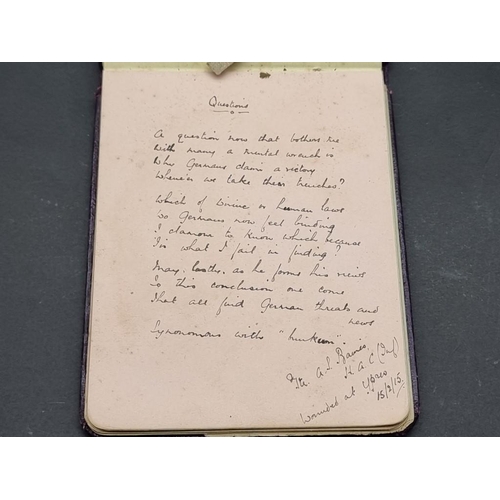 Questions
A question now that bothers me
With many a mental wrench is
Why Germans claim a victory
Whene'er we take their trenches?
Which of Divine or human laws
Do Germans now feel binding
I clamour to know which, because
Is what I fail in finding?
May, lastly, as he forms his views
To this conclusion one come
That all find German threats and
news
Synonomous with "
A. S. Baines,
H.A.C. (Inf)
Wounded at Ypres
15/2/15.